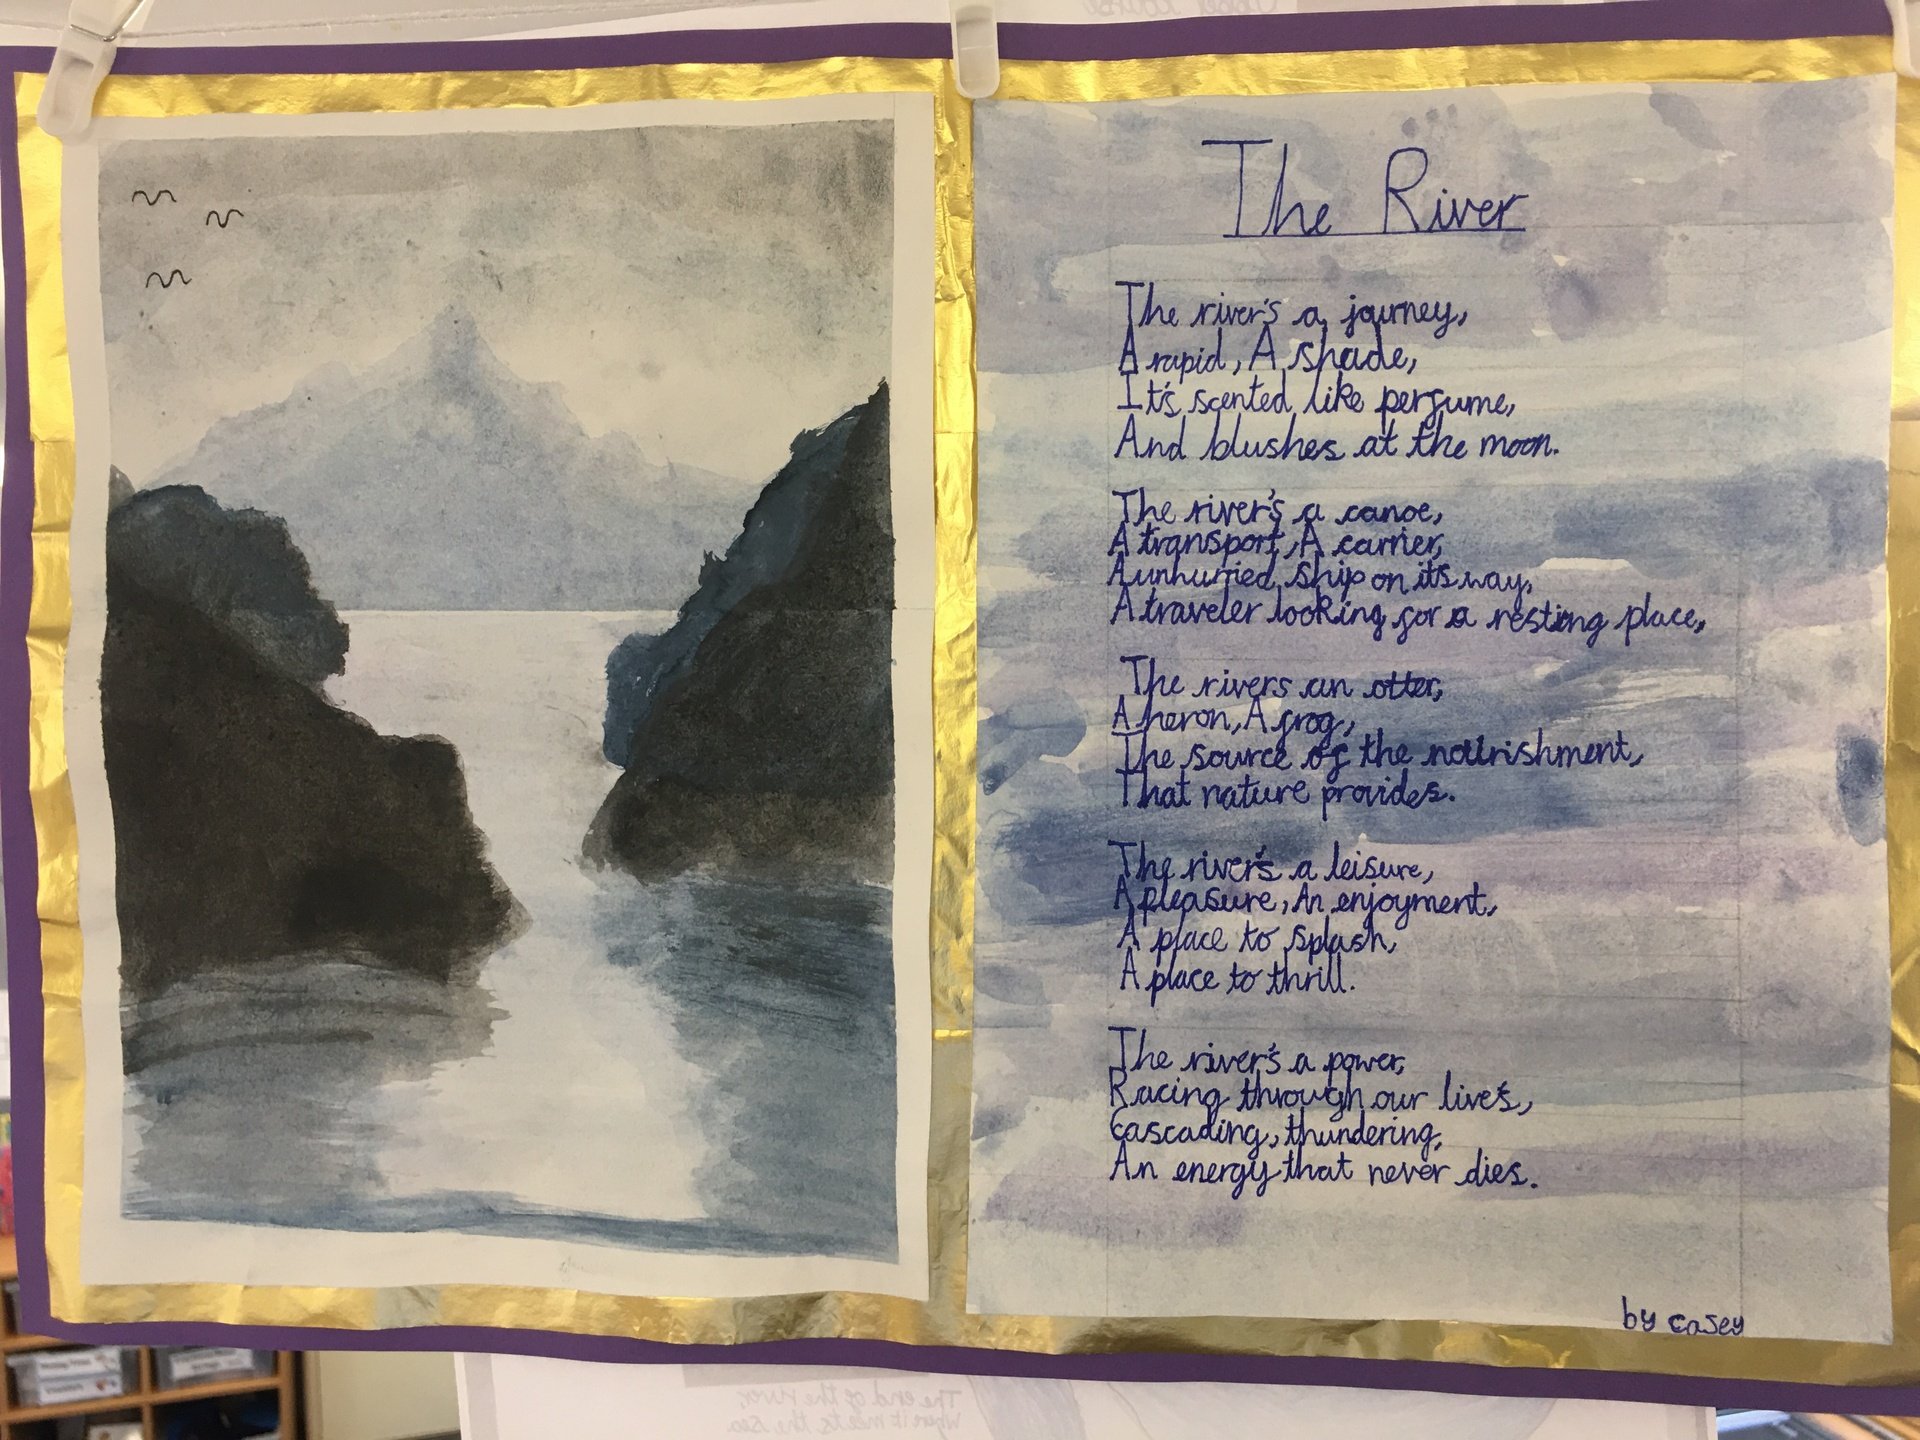 The River
The river's a journey,
A rapid, A shade,
It's scented like perfume,
And blushes at the moon.
The river's a canoe,
A transport, A carrier,
A unhurried ship on it's way,
A traveler looking for a resting place,
The rivers an otter,
A heron, A frog,
The source of the nourishment,
That nature provides.
The river's a leisure,
A pleasure, An enjoyment,
A place to splash,
A place to thrill.
The river's a power,
Racing through our live's,
Cascading, thundering,
An energy that never dies.
by casey
The end of the river,
When it meets the sea